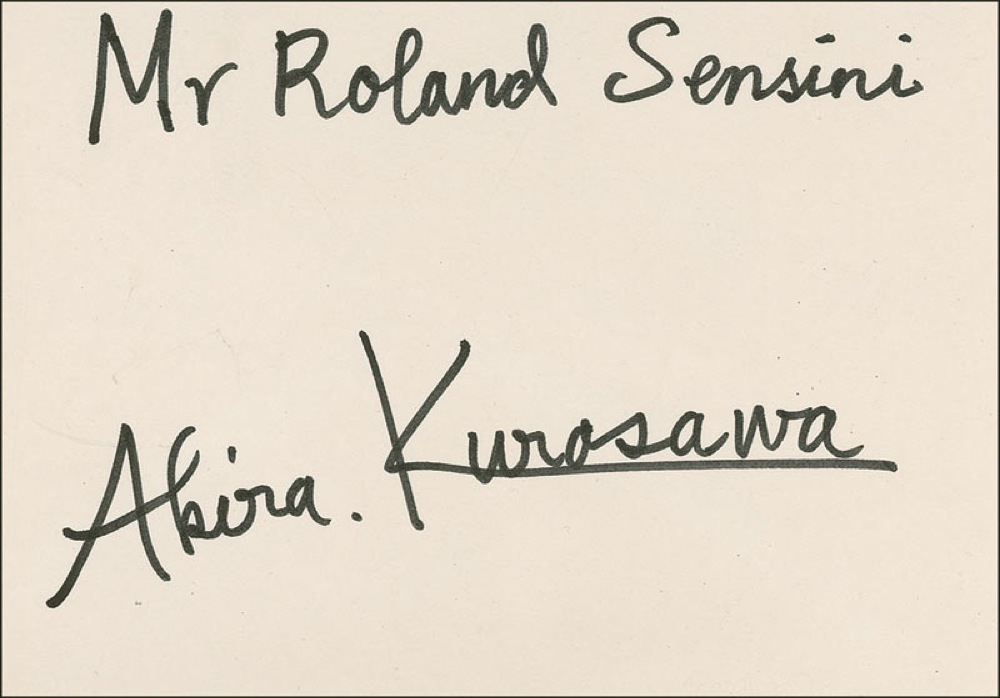 Mr Roland Sensini
Akira. Kurosawa